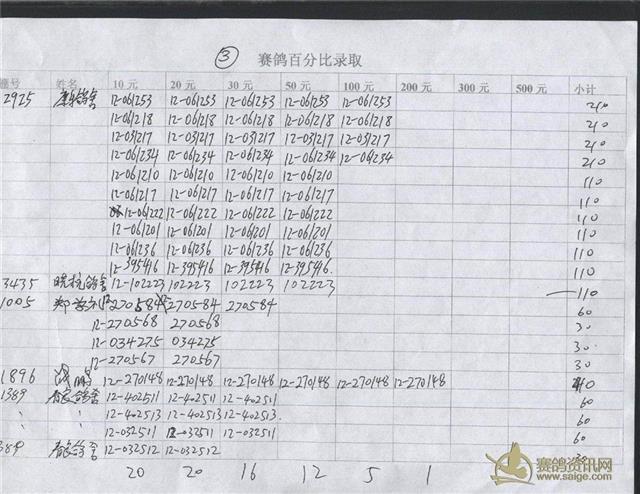 ③ 赛鸽百分比录取
棚号 姓名 10 元 20 元 30 元 50 元 100 元 200 元 300 元 500 元 小计
2925 鸽舍 12-061253 12-061253 12-061253 12-061253 12-061253 210
12-061218 12-061218 12-061218 12-061218 12-061218 210
12-031217 12-031217 12-031217 12-031217 12-031217 210
12-061234 12-061234 12-061234 12-061234 12-061234 210
12-061210 12-061210 12-061210 12-061210 110
12-061217 12-061217 12-061217 12-061217 110
12-061222 12-061222 12-061222 12-061222 110
12-061201 12-061201 12-061201 12-061201 110
12-061236 12-061236 12-061236 12-061236 110
12-395416 12-395416 12-395416 12-395416 110
3435 鸽舍 12-102223 102223 102223 102223 110
1005 郑 12-270584 270584 270584 60
12-270568 270568 30
12-034275 034275 30
12-270567 270567 30
1896 12-270148 12-270148 12-270148 12-270148 12-270148 12-270148 410
1389 鸽舍 12-402511 12-402511 12-402511 60
12-402513 12-402513 12-402513 60
12-032511 12-032511 12-032511 60
389 鸽舍 12-032512 12-032512 30
20 20 16 12 5 1
赛鸽资讯网
www.saige.com